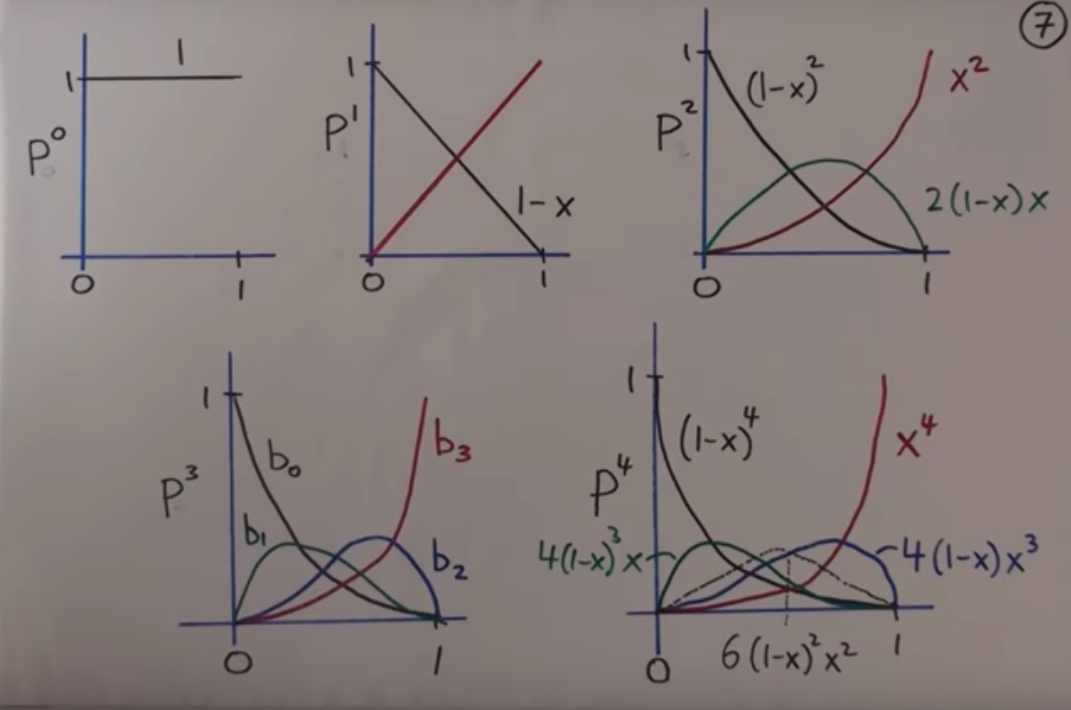 7
P⁰
1
1
0
1
P¹
1
1-x
0
1
P²
1
(1-x)²
x²
2(1-x)x
0
1
P³
1
b₀
b₁
b₂
b₃
0
1
P⁴
1
(1-x)⁴
x⁴
4(1-x)³x
4(1-x)x³
6(1-x)²x²
0
1